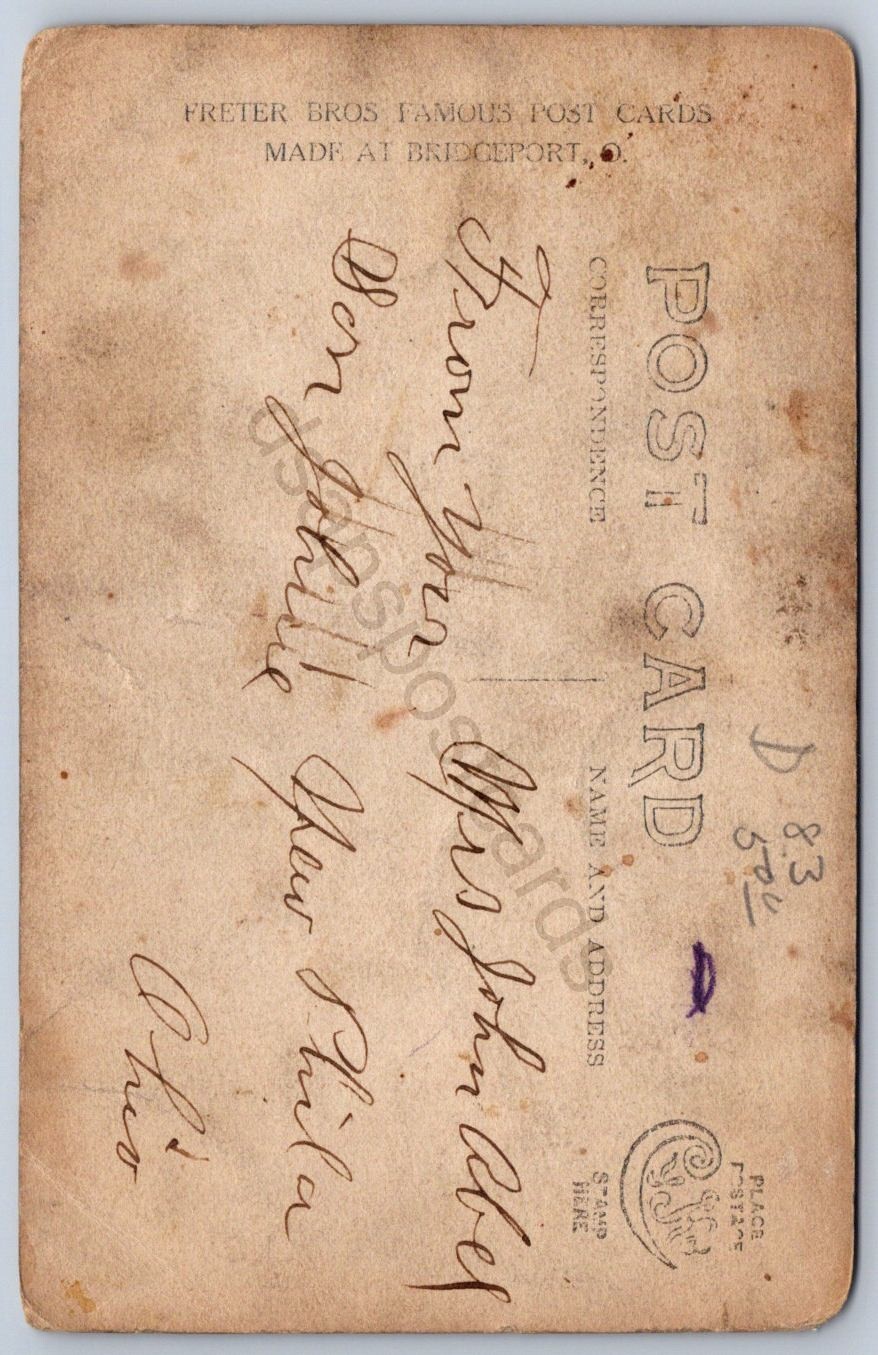 FRETER BROS FAMOUS POST CARDS
MADE AT BRIDGEPORT, O.
POST CARD
CORRESPONDENCE
NAME AND ADDRESS
PLACE
POSTAGE
STAMP
HERE
D 83
500
From Your
Son Johnnie
Mrs John Abel
New Phila
Ohio
dsanspostcards